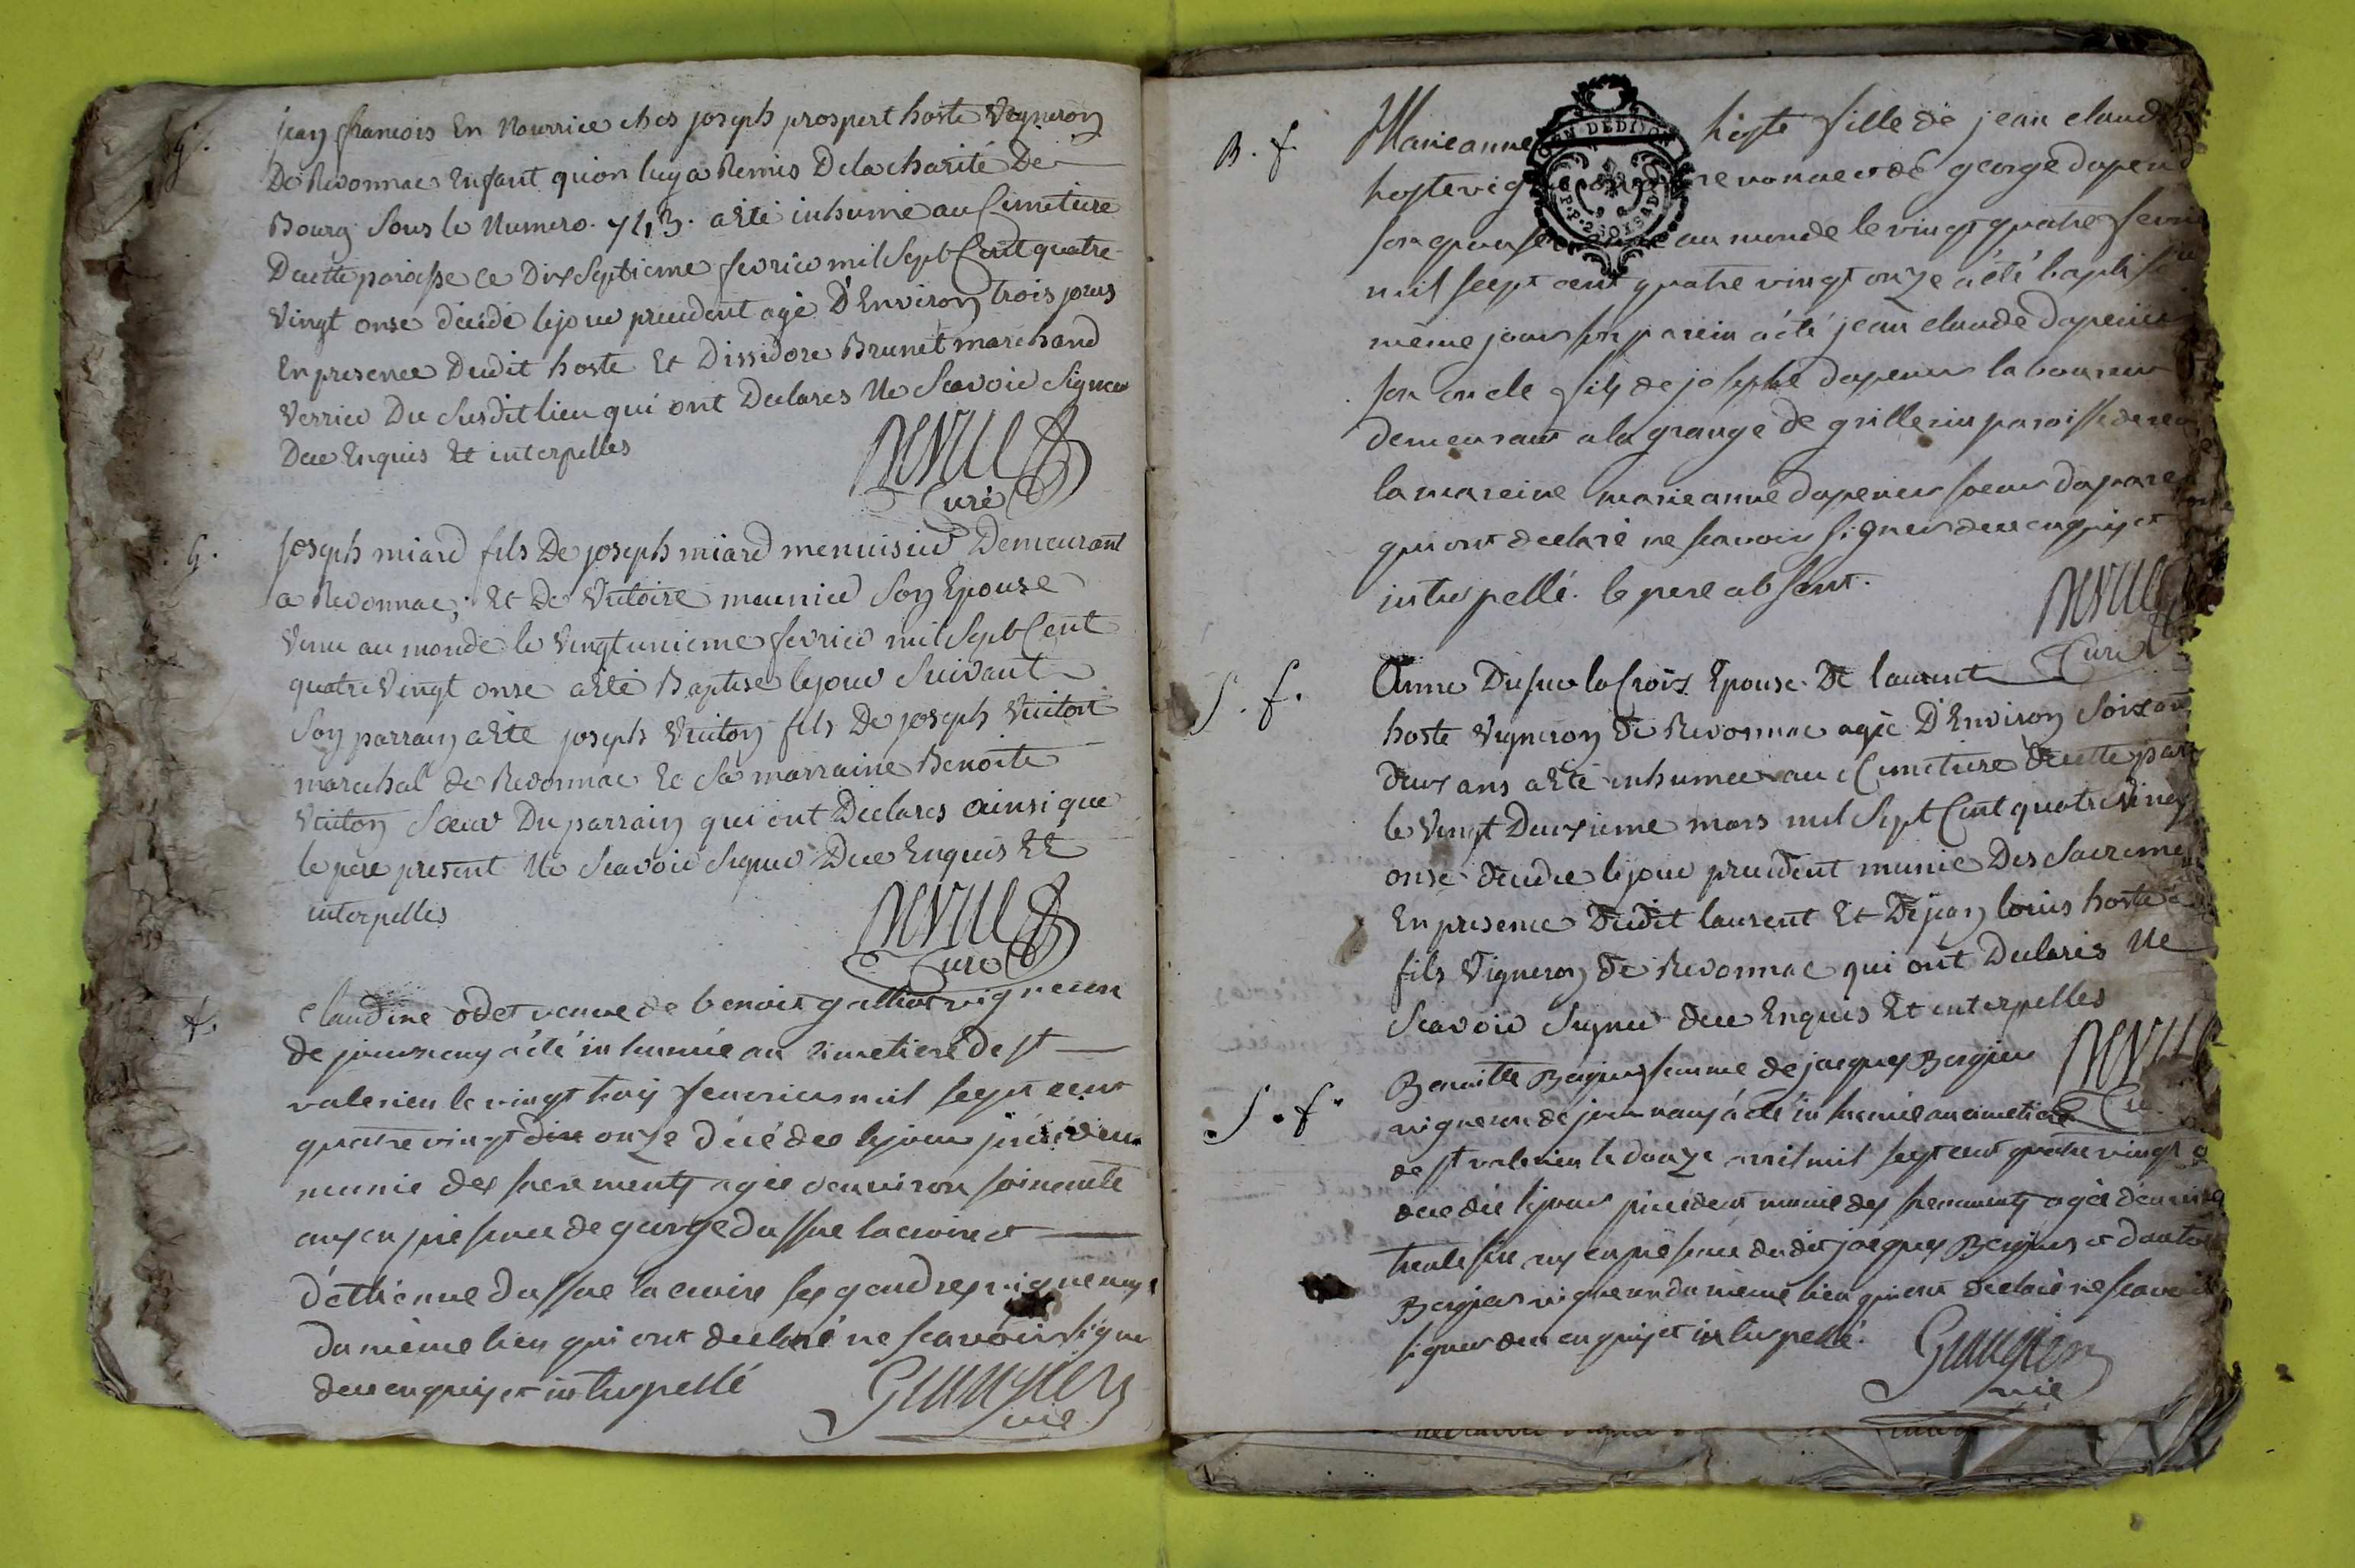 g.
jean francois En Nourrice ches joseph prospert hoste Vigneron
De Revonnas Enfant qu'on luy a Remis De la charité De
Bourg Sous le Numero. 743. a Eté inhumé au Cimetiere
Decette paroisse ce Dix Septieme fevrier mil Sept Cent quatre
Vingt onse décédé le jour precedent agé D'Environ trois jours
En presence Dudit hoste Et Dissidore Brunet marchand
Verrier Du Susdit lieu qui ont Declarés Ne Scavoir Signer
Due Enquis Et interpellés
Curé
g.
joseph miard fils De joseph miard menuisier Demeurant
a Revonnas, Et De Victoire meunier Son Epouse
Venu au monde le Vingtunieme fevrier mil Sept Cent
quatre Vingt onse a Eté Baptisé le jour Suivant
Son parrain a Eté joseph Vuiton fils De joseph Vuiton
marechal de Revonnas Et Sa marraine Benoite
Vuiton Soeur Du parrain qui ont Declarés ainsi que
le pere present Ne Scavoir Signer Due Enquis Et
interpellés
Curé
f.
Claudine odet veuve de benoit vigneron
de journans a été inhumée au cimetiere de st
valerien le vingt trois fevrier mil sept cent
quatre vingt dix onze décédée le jour précédent
munie des sacrements agée denviron soixante
ans en présence de george dussue lacroix et
d'éthienne dussue lacroix ses gendres vignerons
du même lieu qui ont declaré ne scavoir signer
deu enquis et interpellé
vic
B. f.
Marieanne hoste fille de jean claude
hoste vig revonnas et de george dapend
son epouse au monde le vingt quatre fevrier
mil sept cent quatre vingt onze a été baptisée
même jour son parein a été jean claude
son oncle fils de josephe laboureur
demeurant a la grange de paroisse de
la mareine marieanne soeur du
qui ont declaré ne scavoir signer deu enquis et
interpellé. le pere absent.
Curé
S. f.
Anne Dusue la Croix Epouse De laurent
hoste Vigneron De Revonnas agée D'Environ Soixante
deux ans a Eté inhumée au Cimetiere decette par
le Vingt Deuxieme mars mil Sept Cent quatre Vingt
onse décédée le jour precedent munie Des Sacremens
En presence Dudit laurent Et De jean louis hoste
fils Vigneron De Revonnas qui ont Declarés Ne
Scavoir Signer due Enquis Et interpellés
S. f.
Benoitte femme de jacques
vigneron de journans a été inhumée au cimetiere
de st valerien le douze avril mil sept cent quatre vingt
decedée le jour précédent munie des sacrements agée d'environ
trente six ans en présence dudit jacques et
vigneron du même lieu qui ont declaré ne scavoir
signer deu enquis et interpellé.
vic